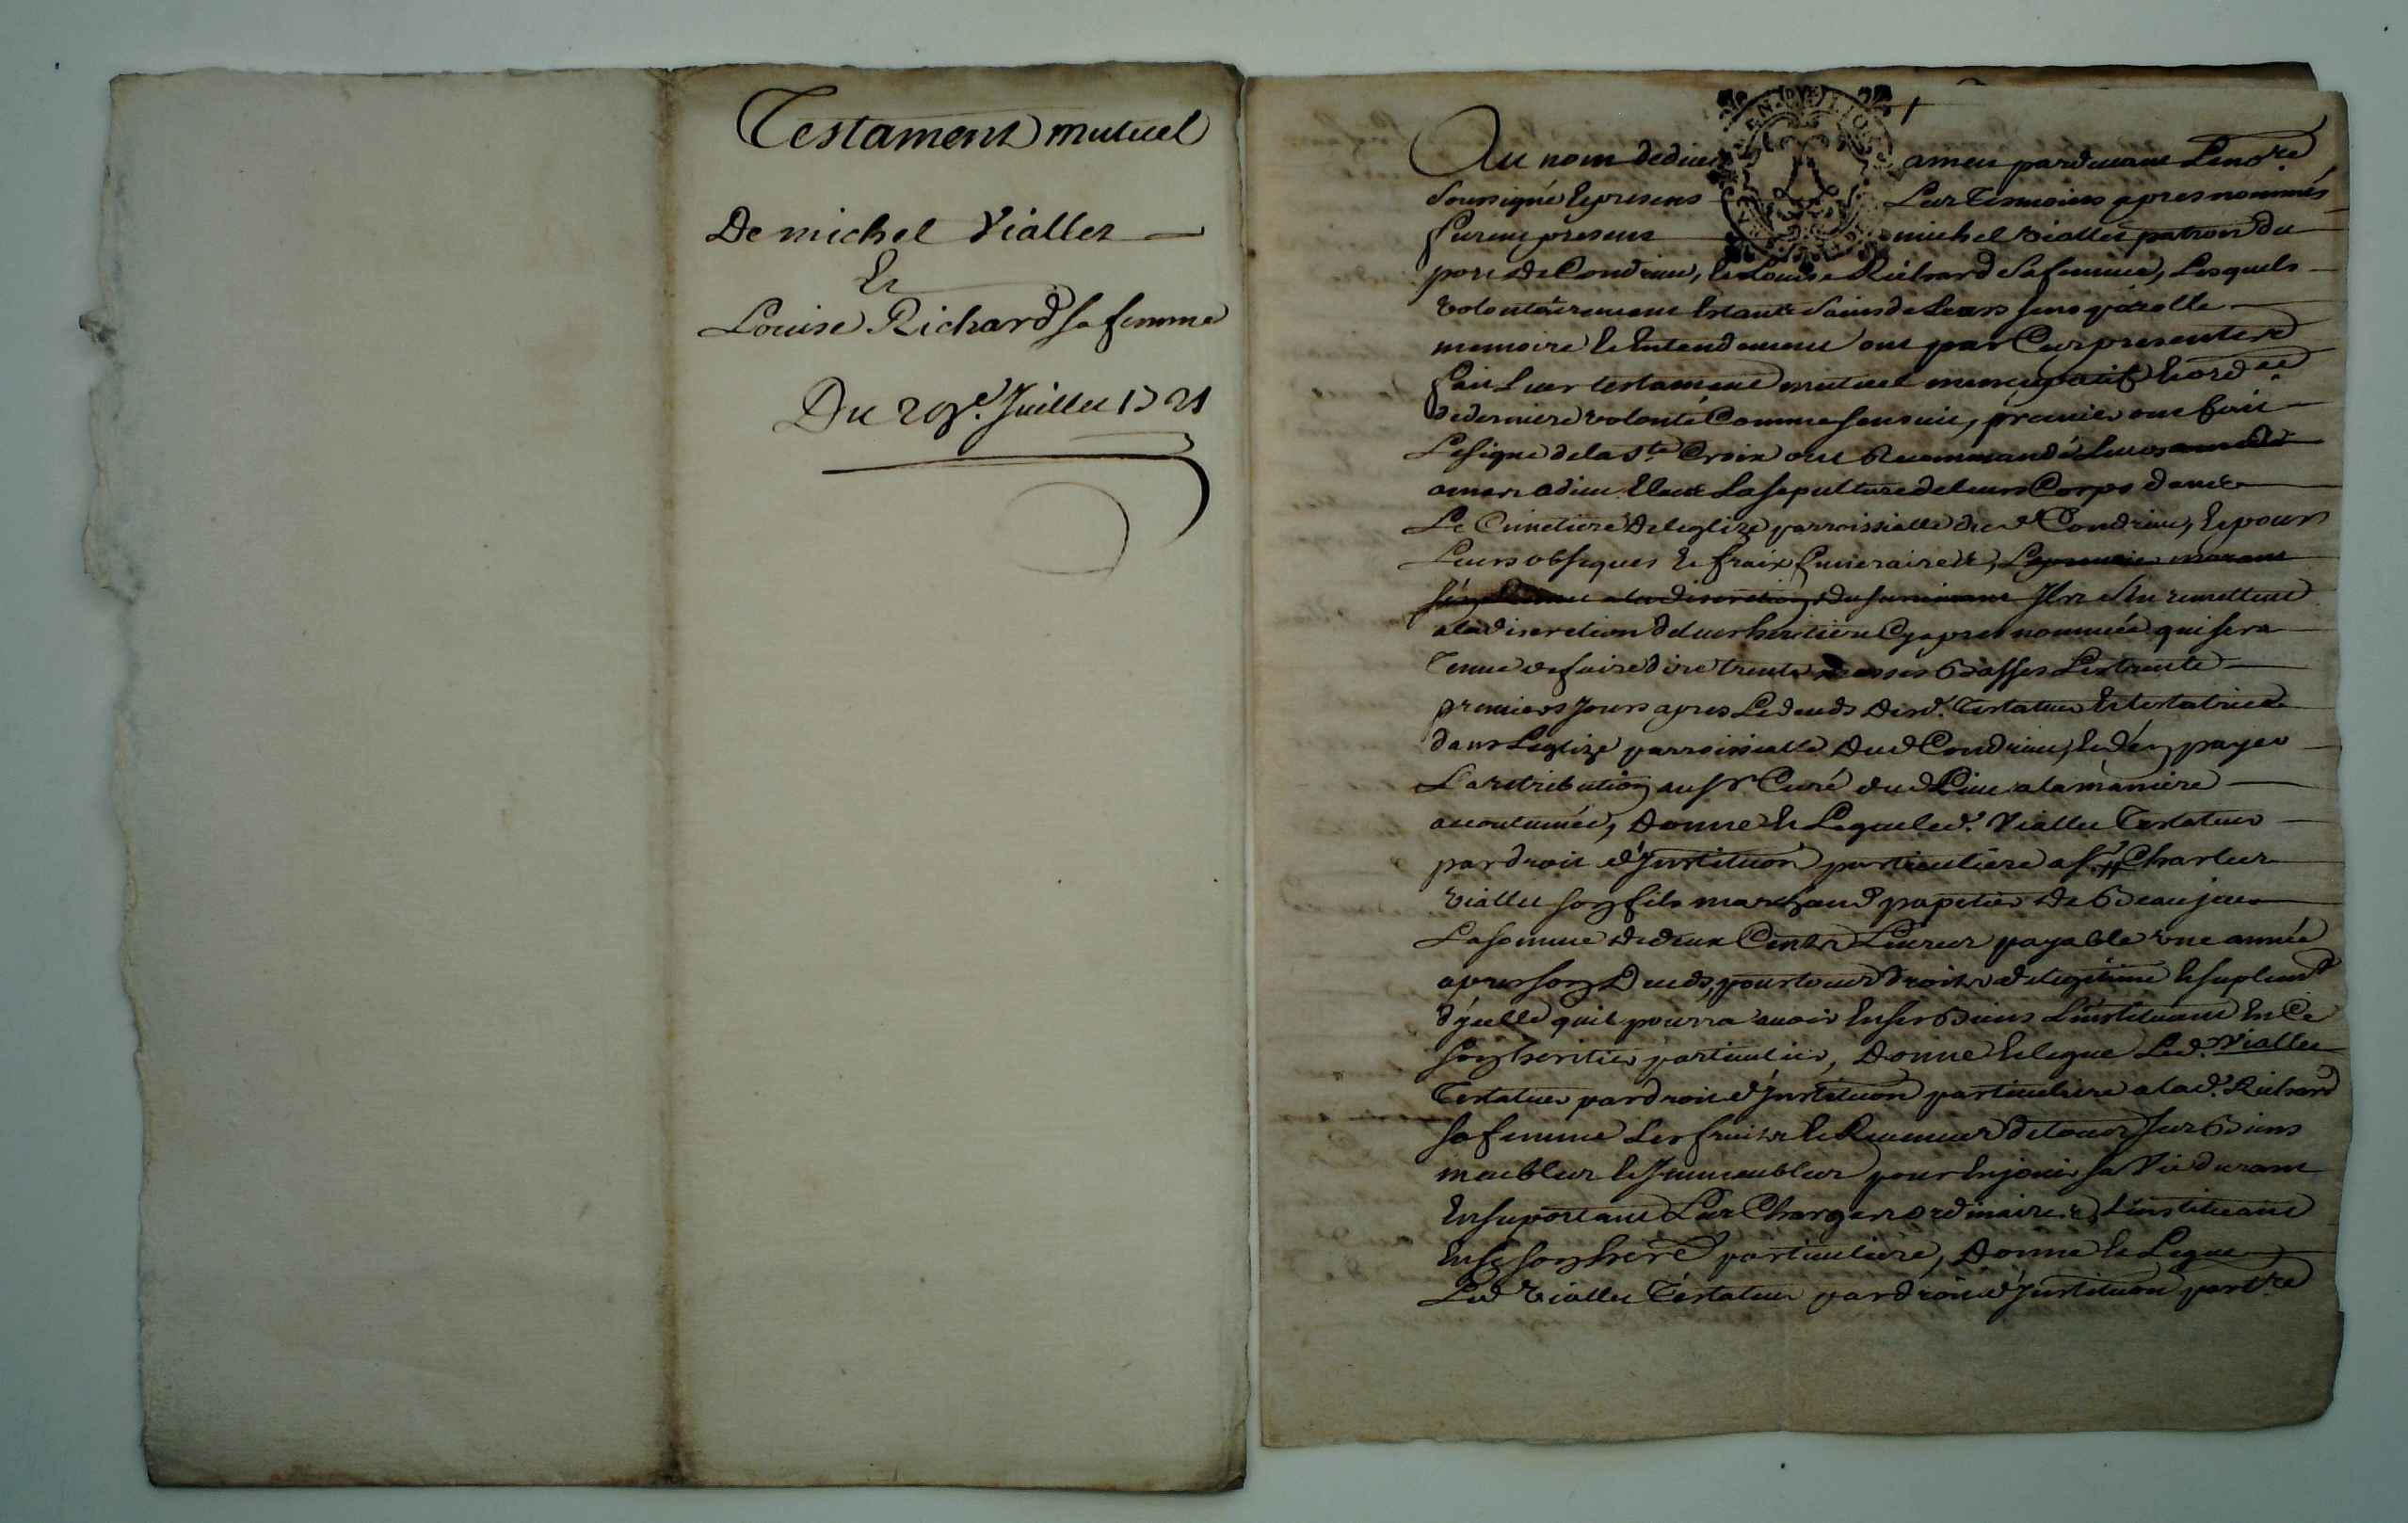 Testament mutuel
De michel Viallet
Et
Louise Richard sa femme
Du 29e. Juillet 1721
Au nom de dieu amen pardevant Le no.re
Soussigné et presens Les Tesmoins apres nommés
furent presens michel viallet patron du
port de Condrieu, et Louise Richard sa femme, Lesquels
volontairement Estants sains de Leurs sens parolle
memoire et Entendement ont par Ces presentes
fait Leur testament mutuel nuncupatif et ord.ce
de derniere volonté Comme sensuit, premier ont fait
Le signe de la S.te Croix ont Recommandé Leurs
ames a dieu Eleu La sepulture de leurs Corps dans
Le Cimetiere De leglize parroissialle du d Condrieu, et pour
Leurs obseques et fraix funeraires, Le premier mourant
sen a la discretion du survivant Ils sen remettent
a la discretion de leur heritiere Cy apres nommée qui sera
Tenue de faire dire trente messes Basses Les trente
premiers Jours apres Le deceds Desd. Testateur et testatrice
dans Leglize parroissialle Dud Condrieu, et den payer
La retribution au sr Curé dud Lieu a la maniere
accoutumée, Donne et Legue led. Viallet Testateur
par droit d'Institution particuliere a sr Charles
viallet son fils marchand papetier de Beaujeu
La somme de deux Cents Livres payable une année
apres son Deceds, pour tous droits de legitime et suplement
d'ycelle quil pourra avoir En ses Biens L'instituant En Ce
son heritier particulier, Donne et legue Led. Viallet
Testateur par droit d'Institution particuliere a lad. Richard
sa femme Les fruits et Revenus de tous ses Biens
meubles et Immeubles pour En jouir sa Vie durant
En suportant Les Charges ordinaires, L'instituant
En Ce son here particuliere, Donne et Legue
Led Viallet Testateur par droit d'Institution part.re